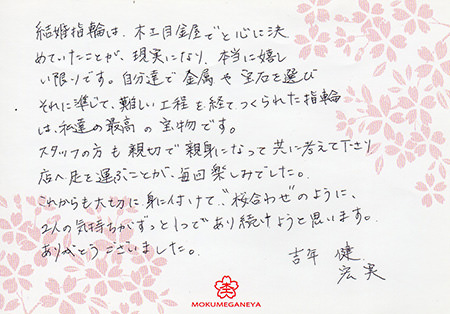 結婚指輪は、木工目金屋でと心に決
めていたことが、現実になり、本当に嬉し
い限りです。自分達で金属や宝石を選び
それに準じて、難しい工程を経てつくられた指輪
は、私達の最高の宝物です。
スタッフの方も親切で親身になって共に考えて下さり
店へ足を運ぶことが、毎回楽しみでした。
これからも大切に身に付けて、"桜合わせ"のように、
2人の気持ちがずっと1つであり続けようと思います。
ありがとうございました。
吉年 健
宏実
MOKUMEGANEYA